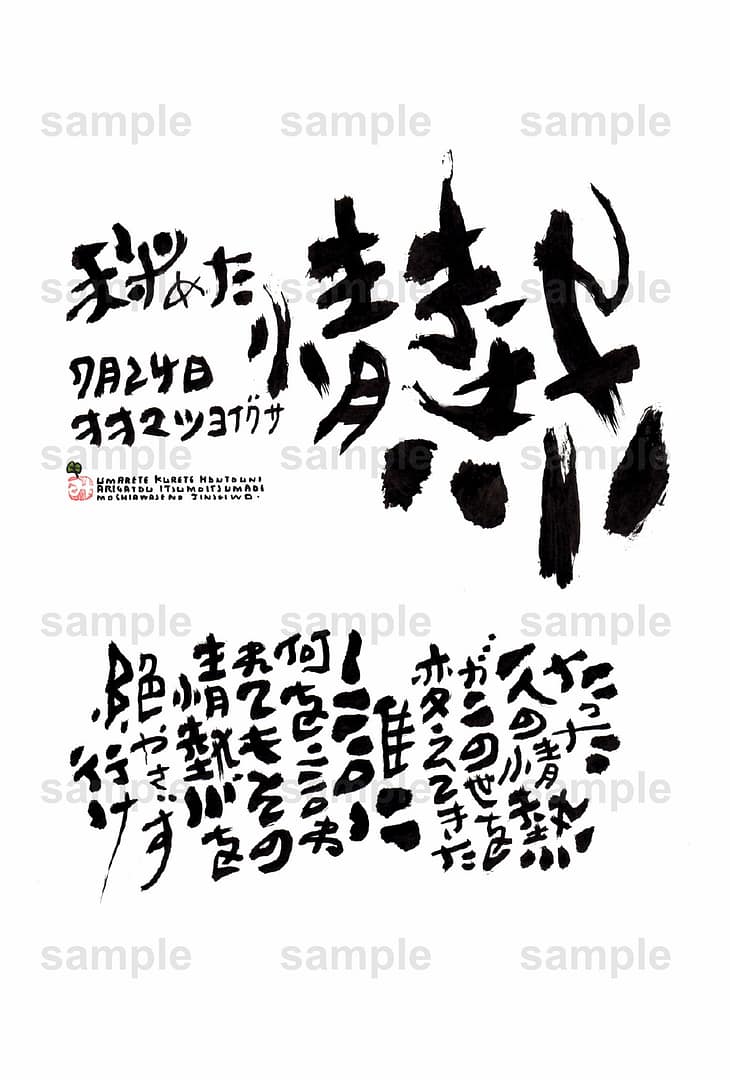 sample sample sample
秘めた
情熱
sample sample sample
7月24日
オオマツヨイグサ
sample sample sample
み
UMARETE KURETE HONTOUNI
ARIGATOU ITSUMOITSUMADE
MOSHIAWASENO JINSEIWO.
sample sample sample
たった
一人の情熱
がこの世を
変えてきた
誰に
何を言わ
れてもその
情熱を
絶やさず
行け
sample sample sample
sample sample sample